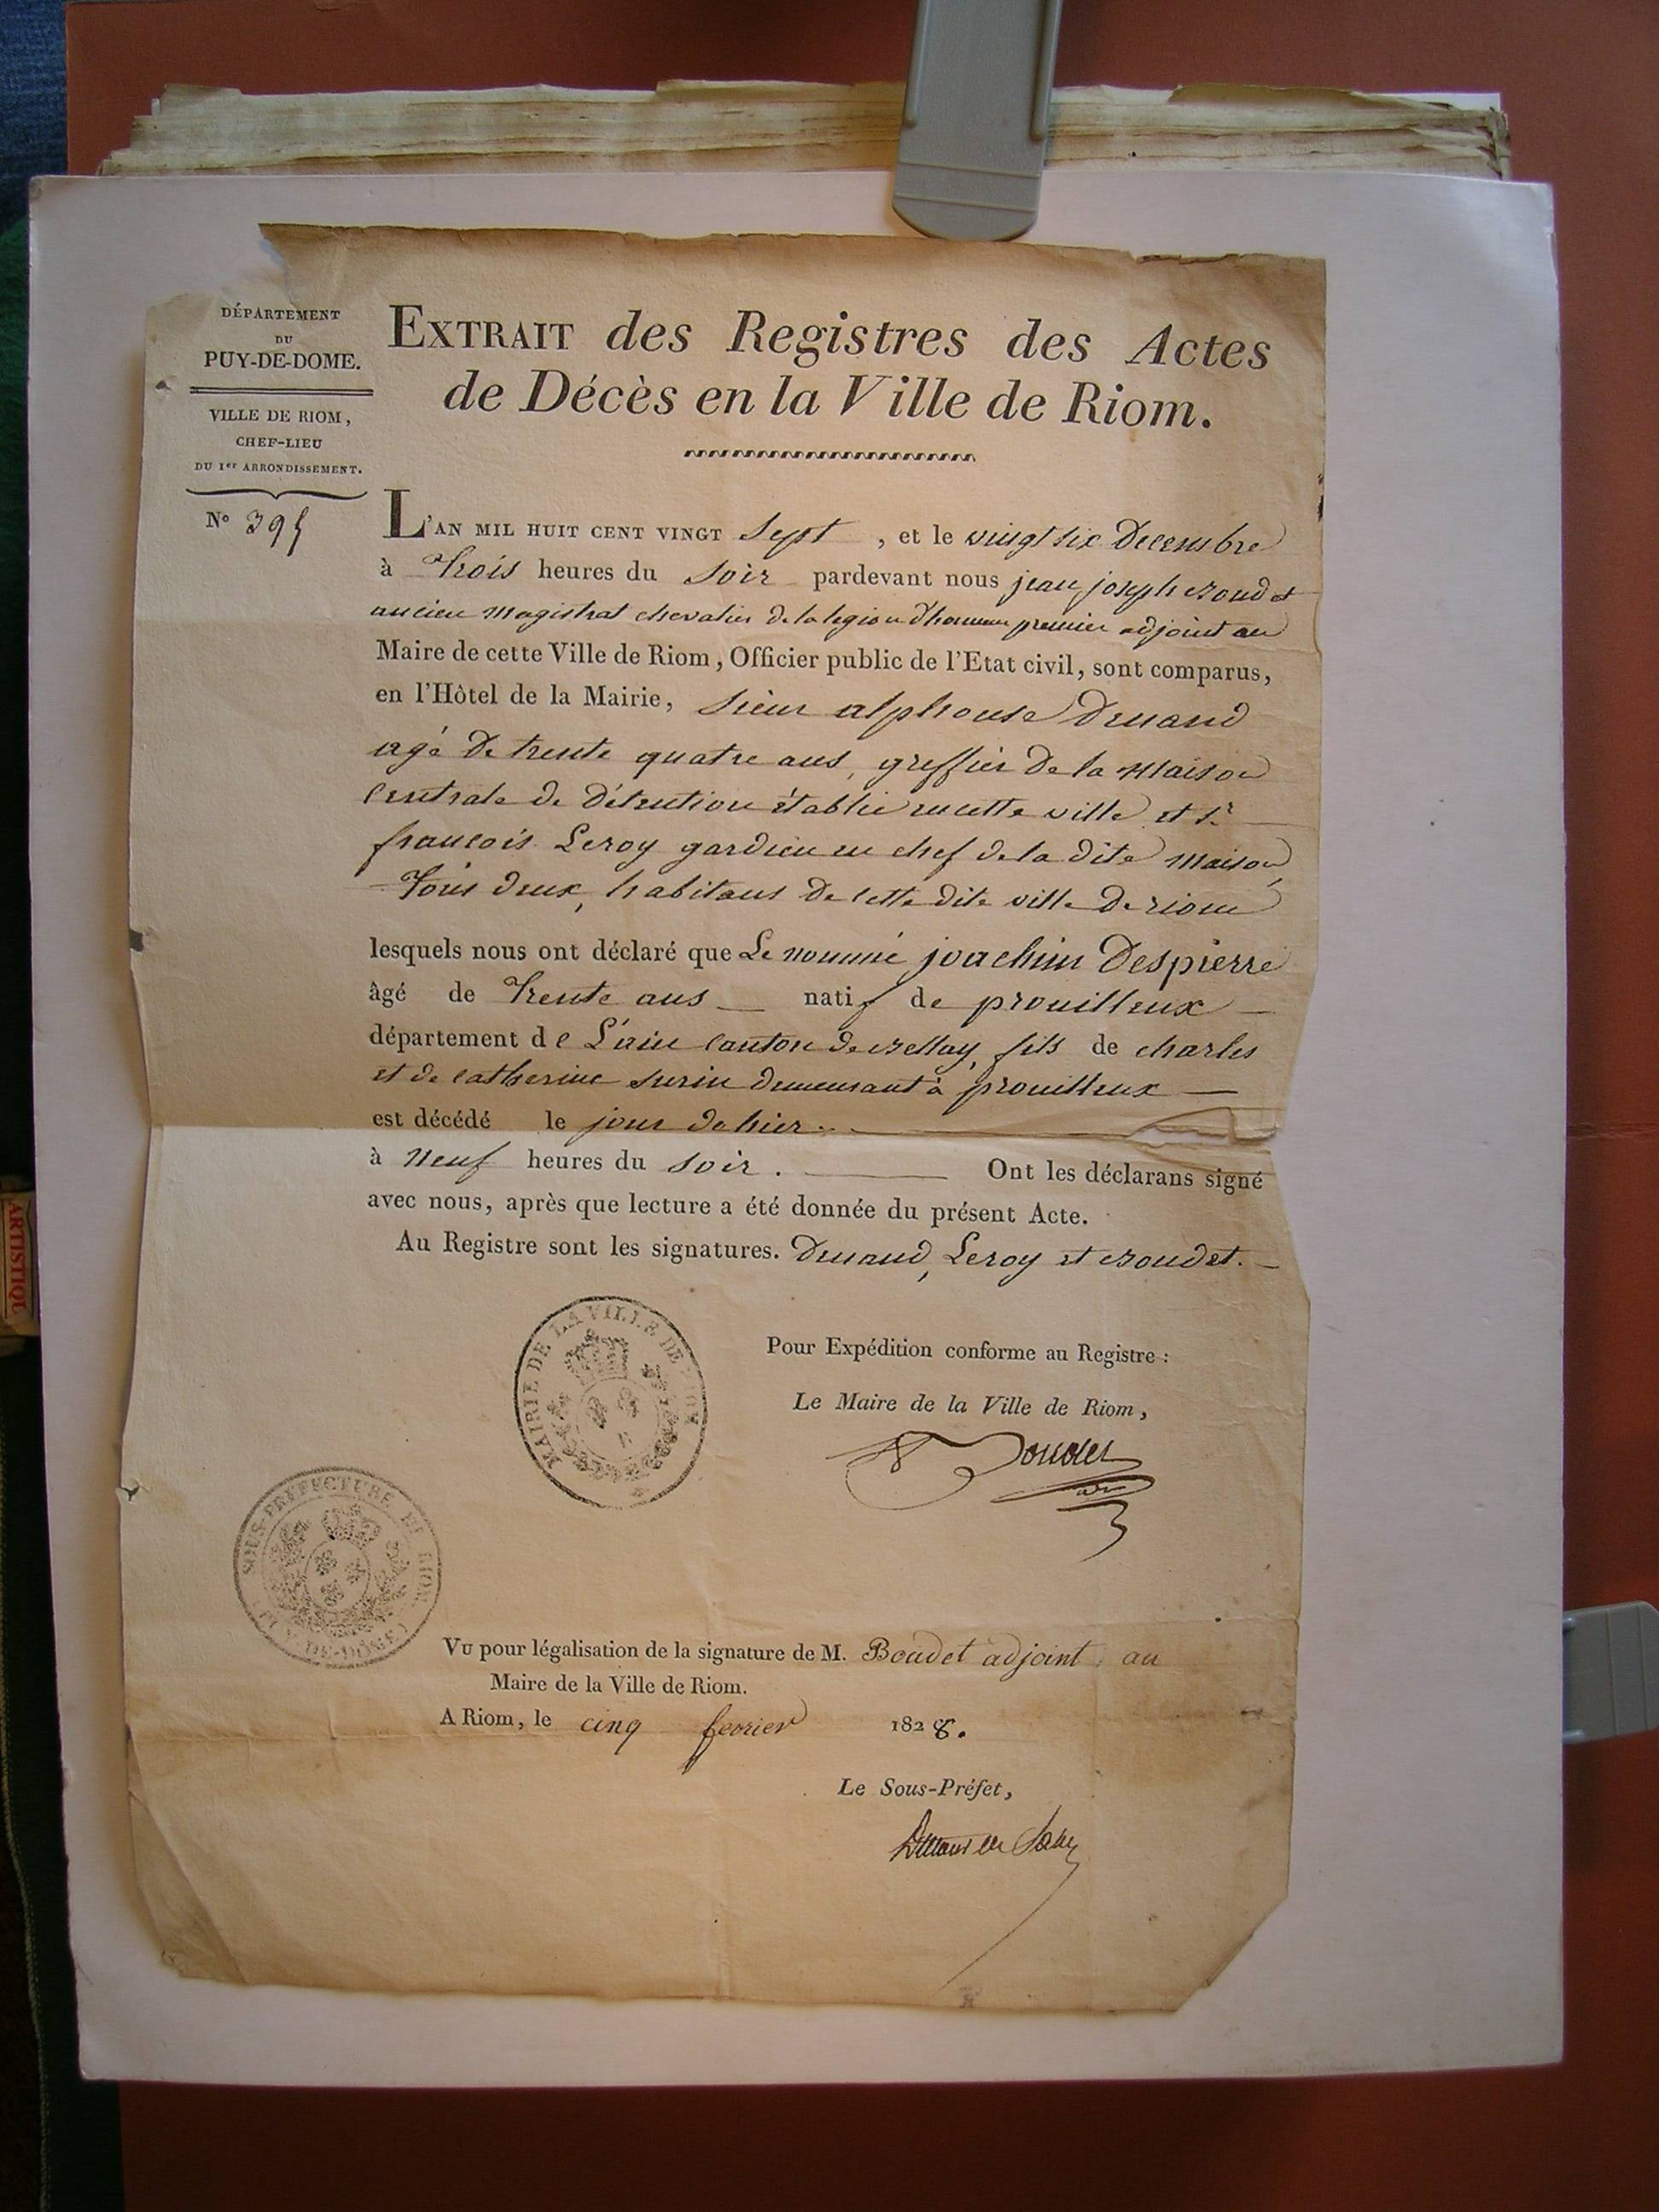 DÉPARTEMENT
DU
PUY-DE-DOME.
VILLE DE RIOM,
CHEF-LIEU
DU 1er ARRONDISSEMENT.
N° 395
EXTRAIT des Registres des Actes
de Décès en la Ville de Riom.
L'AN MIL HUIT CENT VINGT Sept, et le vingt six Decembre
à Trois heures du Soir pardevant nous jean joseph Boudet
ancien Magistrat chevalier de la legion d'honneur premier adjoint au
Maire de cette Ville de Riom, Officier public de l'Etat civil, sont comparus,
en l'Hôtel de la Mairie, Sieur alphonse Druand
agé De trente quatre ans, greffier De la Maison
Centrale de Détention établie en cette ville et Sr
francois Leroy gardien en chef de la dite Maison,
Tous deux, habitans De cette dite ville De riom
lesquels nous ont déclaré que Le nommé joachim Despierre
âgé de Trente ans natif de prouilleux
département de L'ain Canton de Bellay, fils de charles
et de catherine Surin demeurant à prouilleux
est décédé le jour de hier
à Neuf heures du Soir. Ont les déclarans signé
avec nous, après que lecture a été donnée du présent Acte.
Au Registre sont les signatures. Druand, Leroy et Boudet.
MAIRIE DE LA VILLE DE RIOM
Pour Expédition conforme au Registre:
Le Maire de la Ville de Riom,
Boudet
SOUS-PRÉFECTURE DE RIOM
(PUY-DE-DÔME)
VU pour légalisation de la signature de M. Boudet adjoint au
Maire de la Ville de Riom.
A Riom, le cinq fevrier 1828.
Le Sous-Préfet,
ARTISTIQU